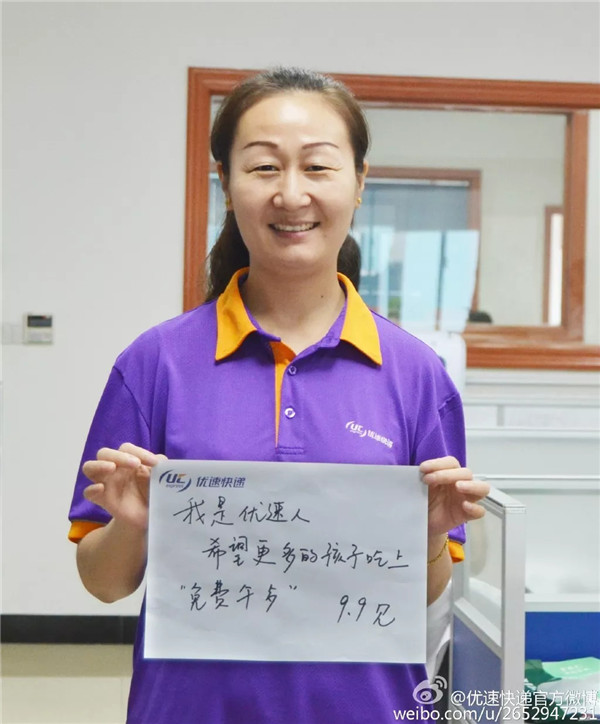 UC 优速快递
UC EXPRESS 优速快递
我是优速人
希望更多的孩子吃上
“免费午歺” 9.9见
@优速快递官方微博
weibo.com/u/2652947231